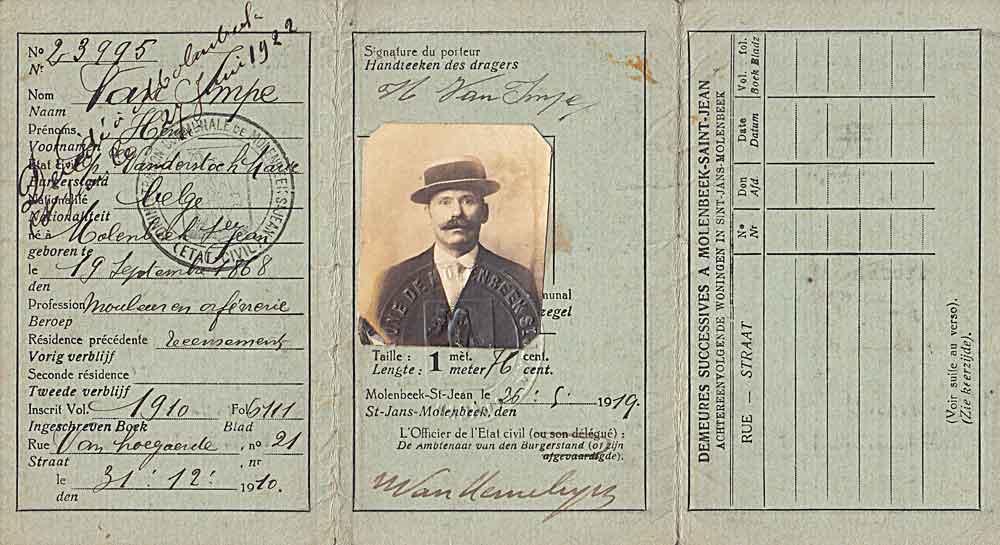 No 23995
Nr
Nom Van Impe
Naam
Prénoms Henri
Voornamen
Etat Civil ép. Vanderstock Marie
Burgerstand
Nationalité belge
Nationaliteit
né à Molenbeek St Jean
geboren te
le 19 Septembre 1868
den
Profession Mouleur en orfèvrerie
Beroep
Résidence précédente recensement
Vorig verblijf
Seconde résidence
Tweede verblijf
Inscrit Vol. 1910 Fol. 6111
Ingeschreven Boek Blad
Rue Van hoegaerde, no 21
Straat nr
le 31: 12: 1910.
den
Décédé à Molenbeek
le 27 1922
ETAT CIVIL
Signature du porteur
Handteeken des dragers
H Van Impe
MUNE DE MOLENBEEK ST
munal
zegel
Taille : 1 mèt. 76 cent.
Lengte : meter cent.
Molenbeek-St-Jean le 26: 5: 1919.
St-Jans-Molenbeek, den
L'Officier de l'Etat civil (ou son délégué) :
De Ambtenaar van den Burgerstand (of zijn
afgevaardigde).
DEMEURES SUCCESSIVES A MOLENBEEK-SAINT-JEAN
ACHTEREENVOLGENDE WONINGEN IN SINT-JANS-MOLENBEEK
RUE — STRAAT
No
Nr
Don
Afd.
Date
Datum
Vol. fol.
Boek Bladz
(Voir suite au verso).
(Zie keerzijde).